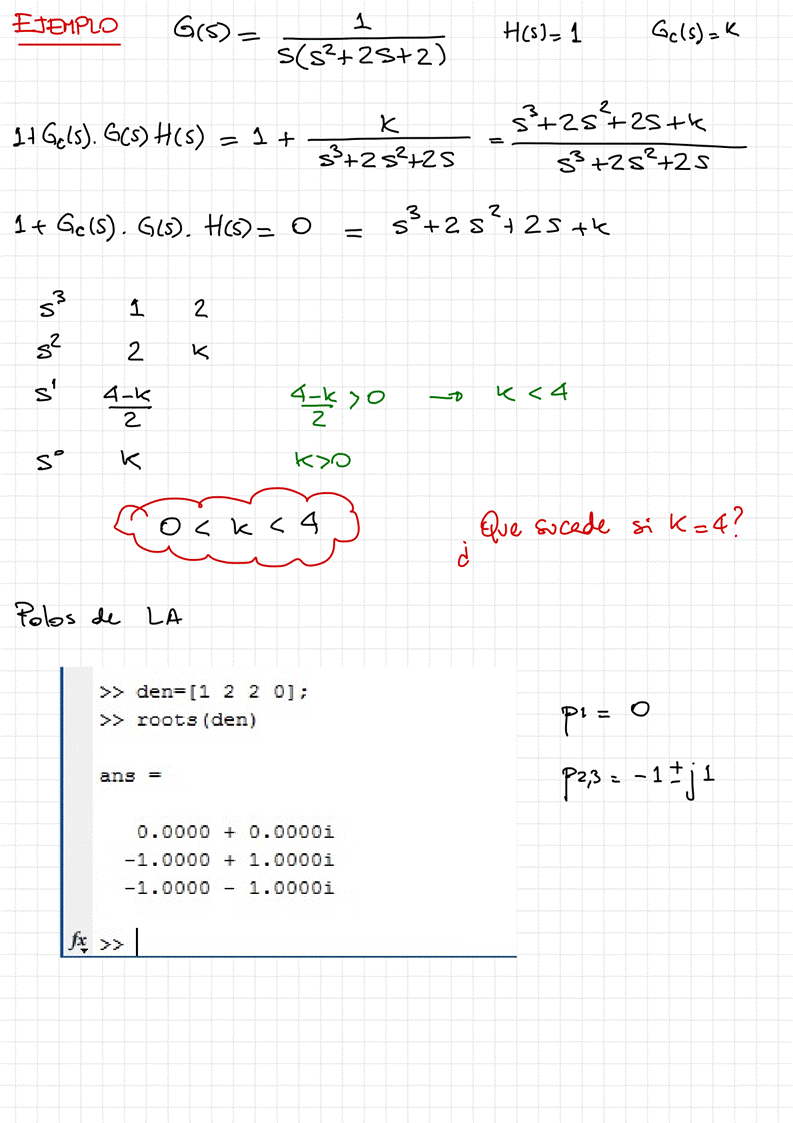 EJEMPLO G(s) = 1 / s(s²+2s+2) H(s)=1 Gc(s)=K
1+Gc(s).G(s)H(s) = 1 + K / s³+2s²+2s = s³+2s²+2s+K / s³+2s²+2s
1+Gc(s).G(s).H(s)= 0 = s³+2s²+2s+K
s³ 1 2
s² 2 K
s¹ 4-K / 2 4-K / 2 >0 → K<4
s⁰ K K>0
0 < K < 4 ¿Que sucede si K=4?
Polos de LA
>> den=[1 2 2 0];
>> roots(den)
p1 = 0
ans =
p2,3 = -1±j1
0.0000 + 0.0000i
-1.0000 + 1.0000i
-1.0000 - 1.0000i
fx >>